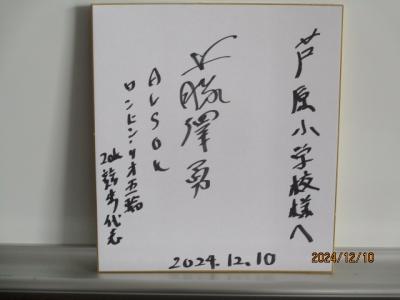 芦原小学校様へ
藤澤勇
ALSOK
ロンドン・リオ五輪
20k 競歩代表
2024.12.10
2024/12/10